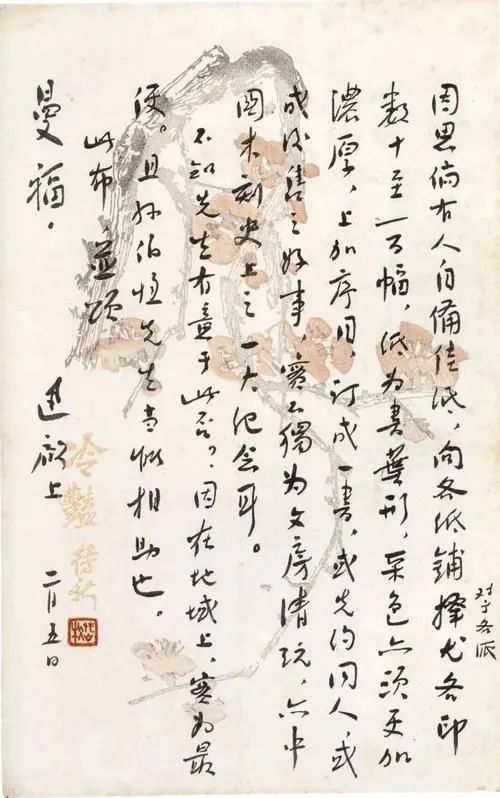 因思倘有人自備佳紙，向各紙鋪擇尤各印
对于各派
数十至一百幅，紙為書葉形，采色亦須更加
濃厚，上加序目，訂成一書，或先约同人，或
成后售之好事，實不獨為文房清玩，亦中
國木刻史上之一大紀念耳。
不知先生有意于此否？因在地域上，實為最
便。且孫伯恆先生當能相助也。
此布，並頌
曼福。
迅啟上 二月五日
冷豔 待秋